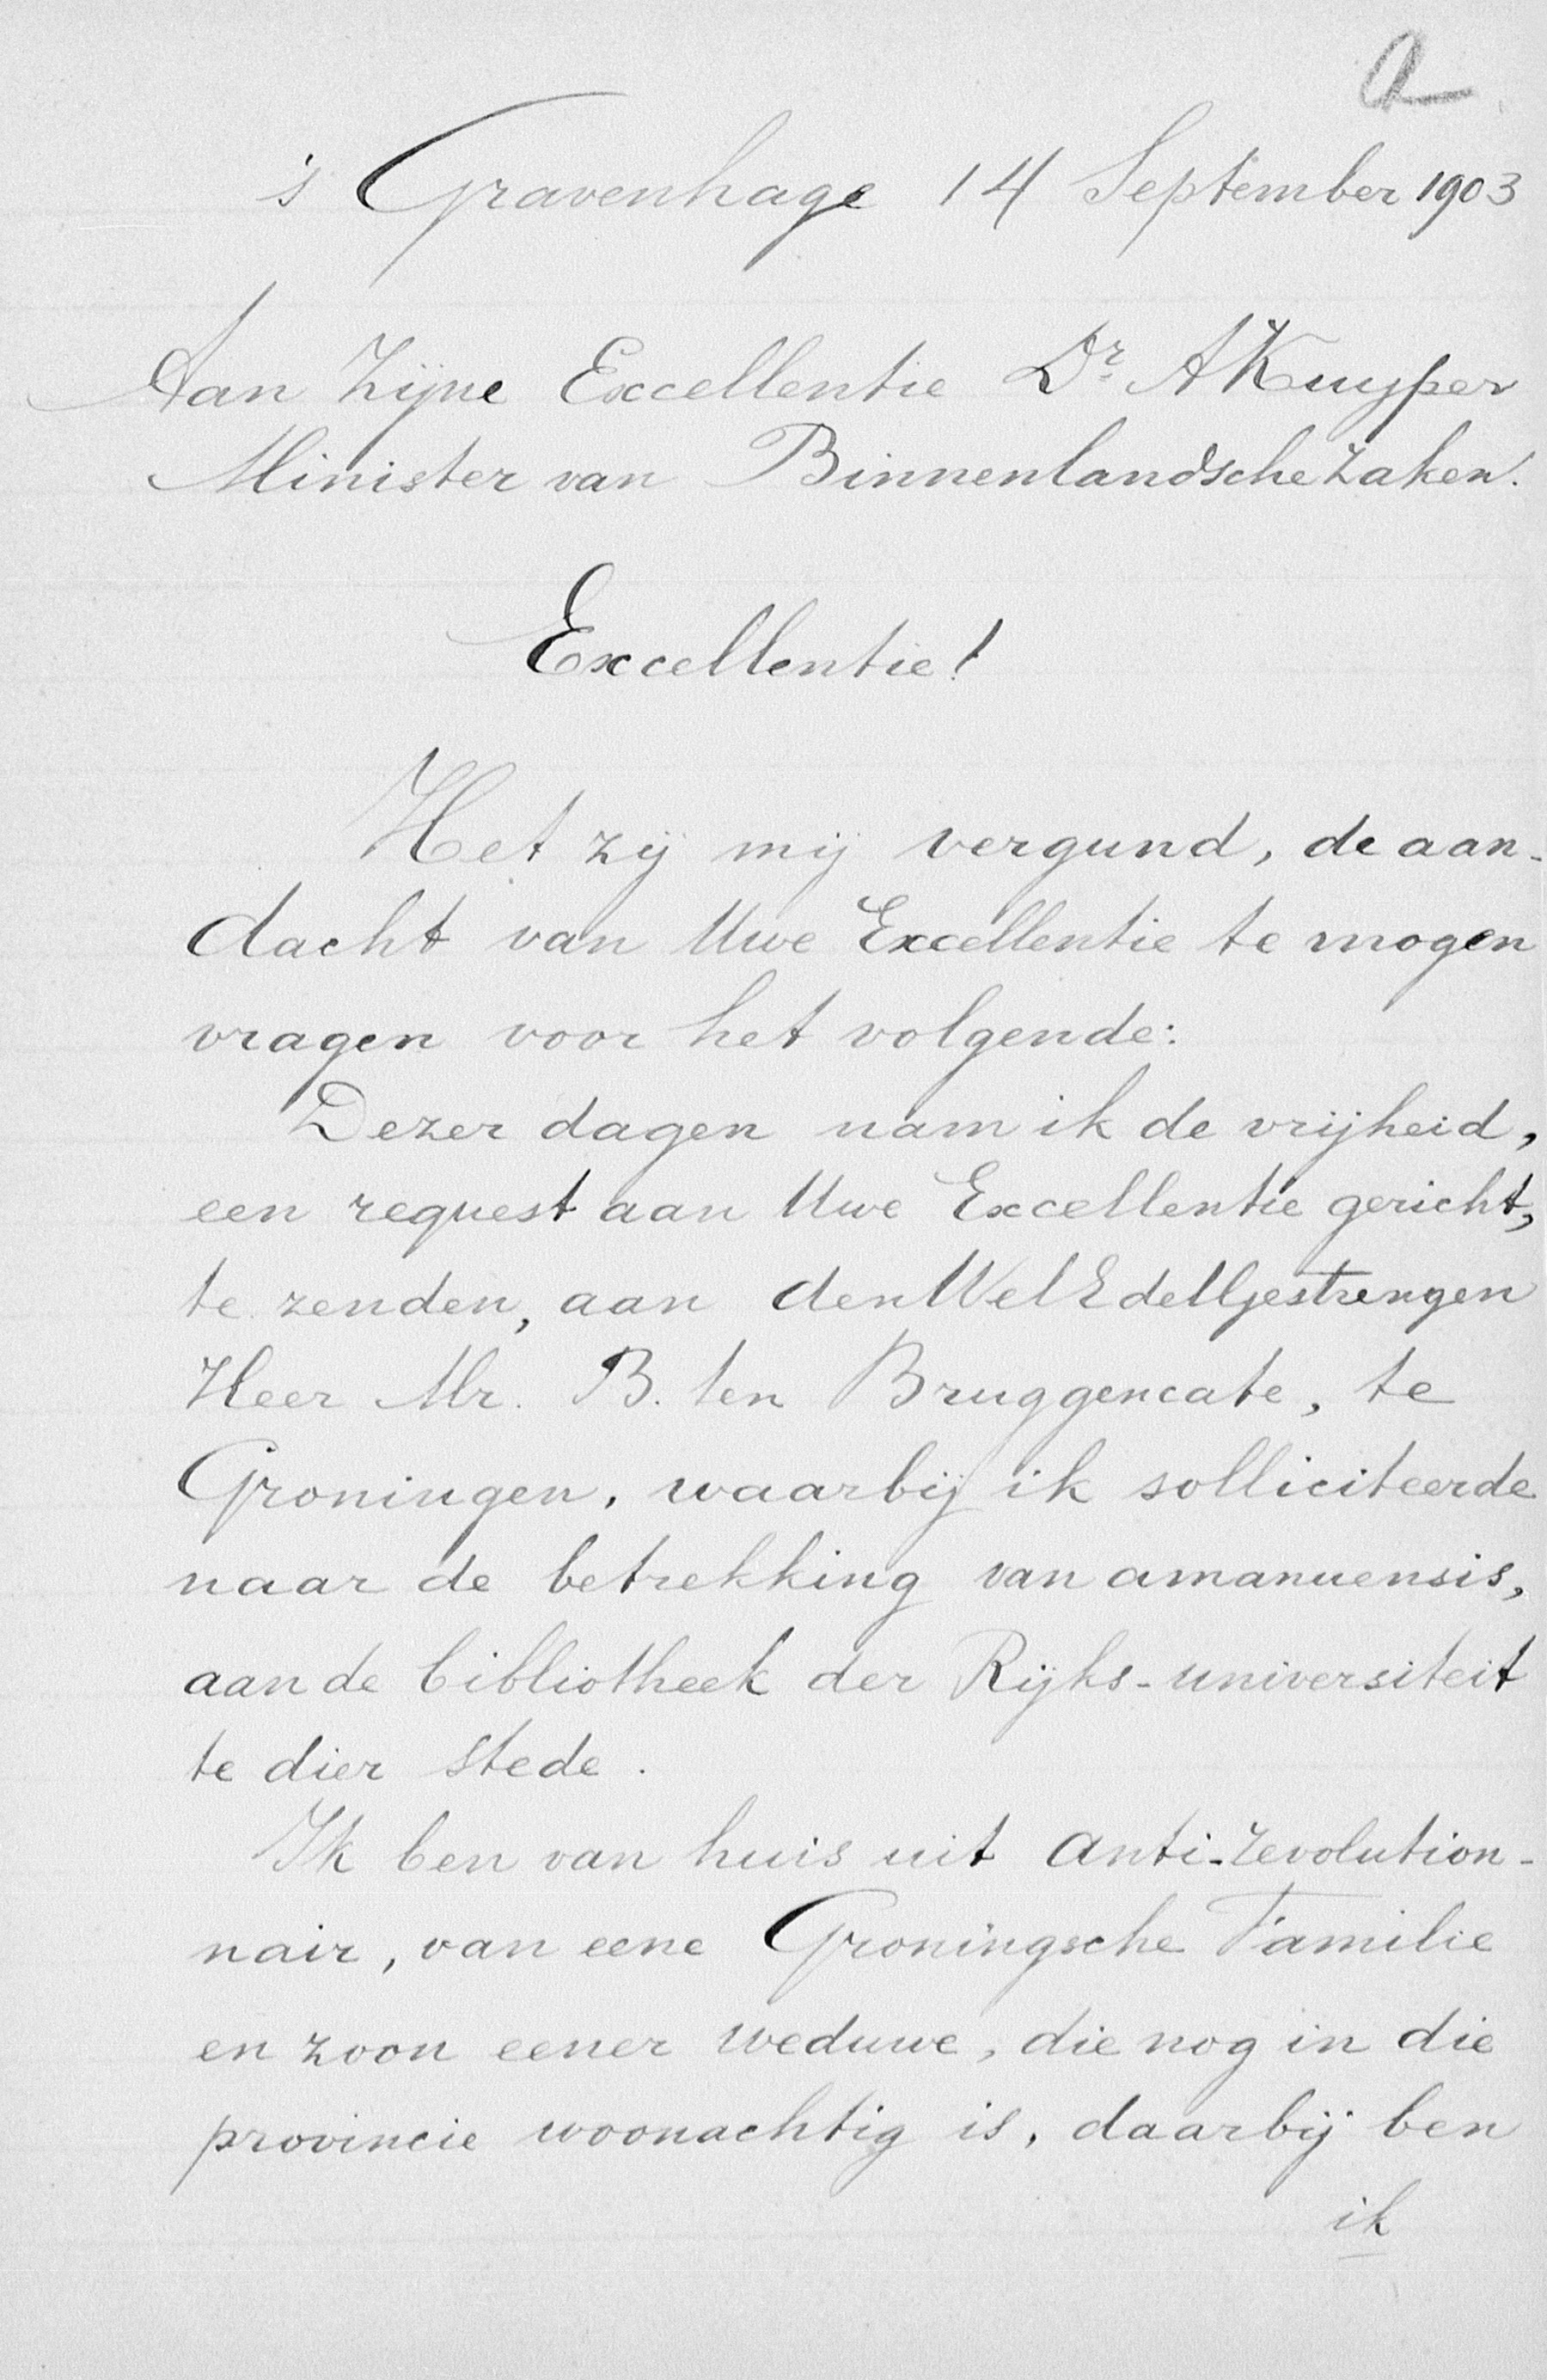 a
's Gravenhage 14 September 1903
Aan Zijne Excellentie Dr A Kuyper
Minister van Binnenlandsche Zaken.
Excellentie!
Het zij mij vergund, de aan-
dacht van Uwe Excellentie te mogen
vragen voor het volgende:
Dezer dagen nam ik de vrijheid,
een request aan Uwe Excellentie gericht,
te zenden, aan den WelEdelGestrengen
Heer Mr. B. ten Bruggencate, te
Groningen, waarbij ik solliciteerde
naar de betrekking van amanuensis,
aan de bibliotheek der Rijks-universiteit
te dier stede.
Ik ben van huis uit Anti-revolution-
nair, van eene Groningsche Familie
en zoon eener weduwe, die nog in die
provincie woonachtig is, daarbij ben
ik